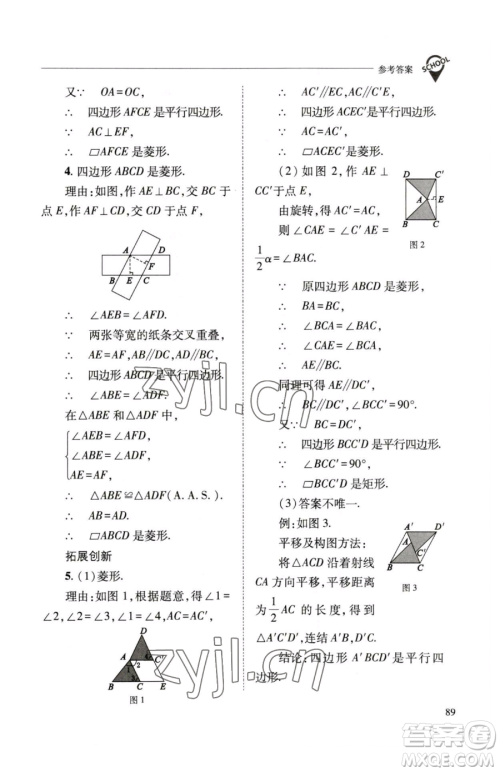 参考答案
SCHOOL
又∵ OA＝OC，
∴ 四边形 AFCE 是平行四边形.
∵ AC⊥EF，
∴ ▱AFCE 是菱形.
4. 四边形 ABCD 是菱形.
理由：如图，作 AE⊥BC，交 BC 于
点 E，作 AF⊥CD，交 CD 于点 F，
A D
F
B E C
∴ ∠AEB＝∠AFD.
∵ 两张等宽的纸条交叉重叠，
∴ AE＝AF，AB∥DC，AD∥BC，
∴ 四边形 ABCD 是平行四边形.
∴ ∠ABE＝∠ADF.
在△ABE 和△ADF 中，
∠ABE＝∠ADF，
∠AEB＝∠AFD，
AE＝AF，
∴ △ABE≌△ADF（A. A. S. ）.
∴ AB＝AD.
∴ ▱ABCD 是菱形.
拓展创新
5. （1）菱形.
理由：如图 1，根据题意，得∠1＝
∠2，∠2＝∠3，∠1＝∠4，AC＝AC′，
D
A C′
B C E
图 1
∴ AC′∥EC，AC∥C′E，
∴ 四边形 ACEC′是平行四边形.
∵ AC＝AC′，
∴ ▱ACEC′是菱形.
（2）如图 2，作 AE⊥
CC′于点 E，
由旋转，得 AC′＝AC，
则∠CAE＝∠C′AE＝
1/2α＝∠BAC.
D C′
A E
B C
图 2
∵ 原四边形 ABCD 是菱形，
∴ ∠BCA＝∠BAC，
∴ ∠CAE＝∠BCA，
∴ AE∥BC.
同理可得 AE∥DC′，
∴ BC∥DC′，∠BCC′＝90°.
又∵ BC＝DC′，
∴ 四边形 BCC′D 是平行四边形.
∵ ∠BCC′＝90°，
∴ ▱BCC′D 是矩形.
（3）答案不唯一.
例：如图 3.
平移及构图方法：
将△ACD 沿着射线
CA 方向平移，平移距离
为1/2 AC 的长度，得到
△A′C′D′，连结 A′B，D′C.
A′ D′
B C
图 3
结论：四边形 A′BCD′是平行四
边形.
zyjl.cn
zyjl.cn
89
答案圈
MXQE.COM